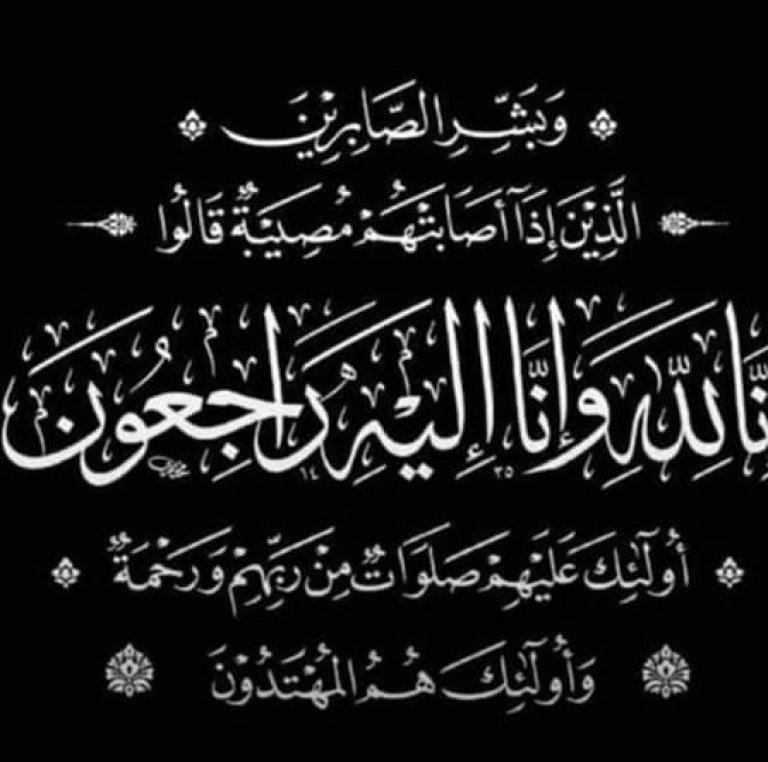 وَبَشِّرِ الصَّابِرِيْنَ
الَّذِيْنَ إِذَآ أَصَابَتْهُمْ مُصِيْبَةٌ قَالُوْا
نَّا لِلّٰهِ وَإِنَّا إِلَيْهِ رَاجِعُوْنَ
١٤ ٣٥
أُولَٓئِكَ عَلَيْهِمْ صَلَوَاتٌ مِنْ رَبِّهِمْ وَرَحْمَةٌ
وَأُولَٓئِكَ هُمُ الْمُهْتَدُوْنَ